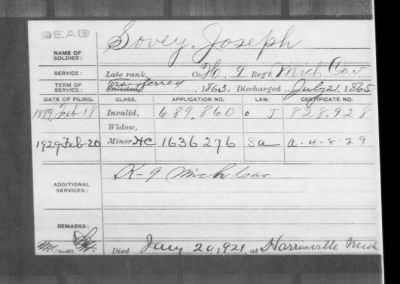 DEAD
NAME OF SOLDIER: Sovey, Joseph
SERVICE: Late rank, Co. H, 9 Reg't Mich Cav
TERM OF SERVICE: transferred Enlisted 1863. Discharged July 21, 1865
DATE OF FILING. CLASS. APPLICATION NO. LAW. CERTIFICATE NO.
1889 Feb 18 Invalid, 689,860 J 828,928
Widow,
1929 Feb-20 Minor HC 1636276 Sa a-4-8-29
ADDITIONAL SERVICES: K-9 Mich Cav
REMARKS:
Died Jany 20, 1921, at Harrisville Mich